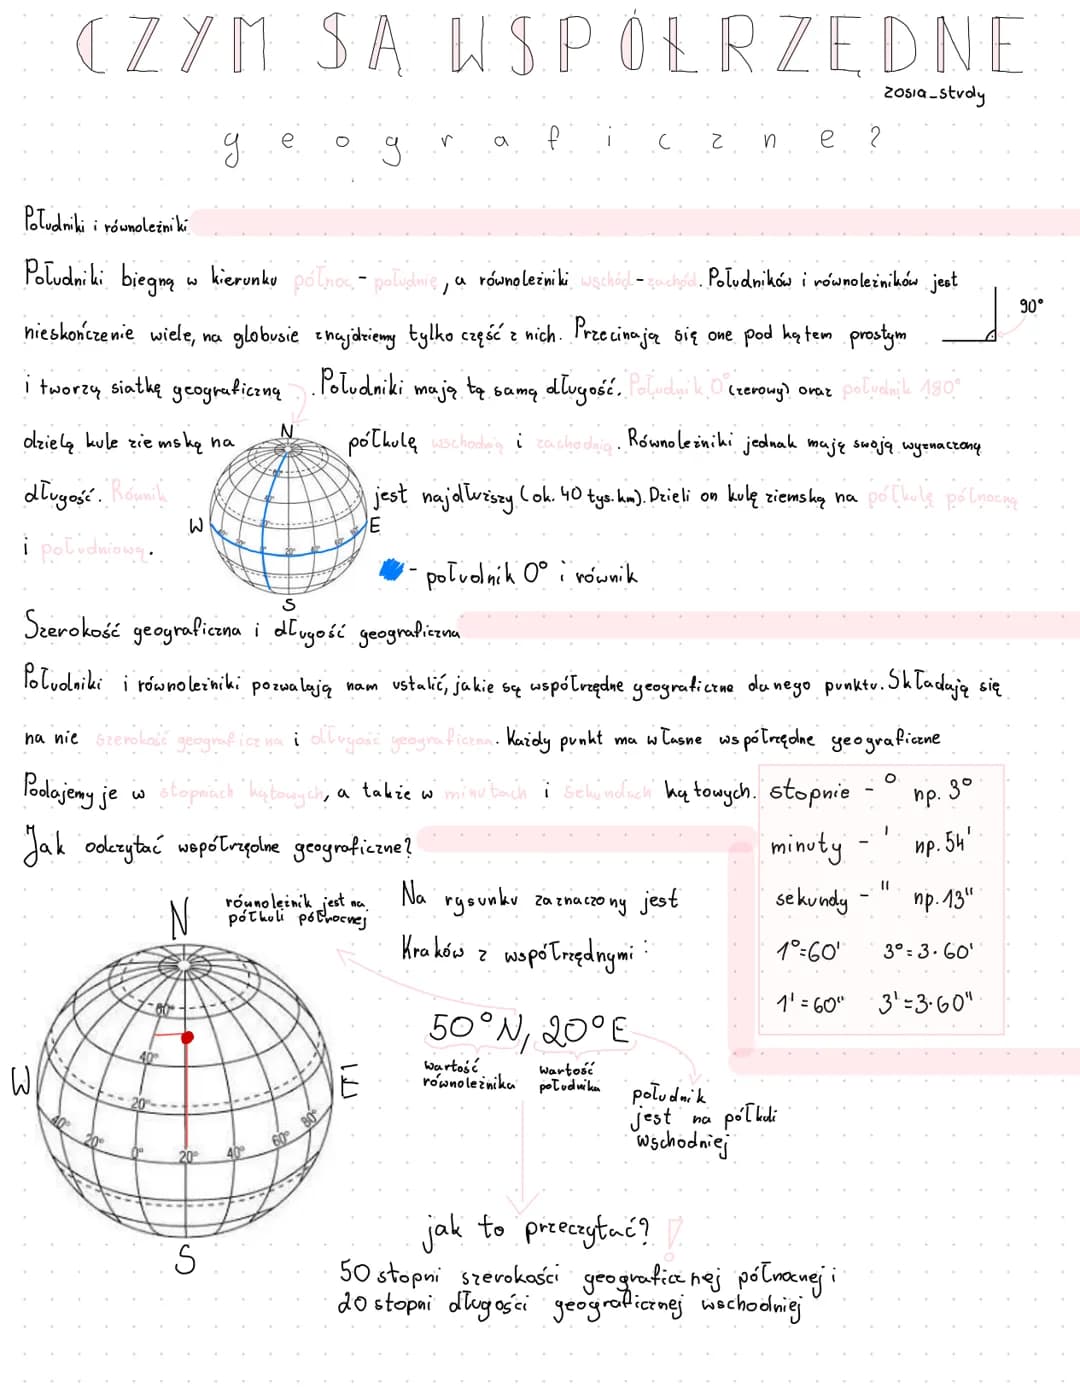 CZYM SĄ WSPÓŁRZĘDNE
zosia_study
geograficzne?
Południki i równoleżniki
Południki biegną w kierunku północ - południe, a równoleżniki wschód - zachód. Południków i równoleżników jest
nieskończenie wiele, na globusie znajdziemy tylko część z nich. Przecinają się one pod kątem prostym
90°
i tworzą siatkę geograficzną. Południki mają tą samą długość. Południk 0° (zerowy) oraz południk 180°
dzielą kule ziemską na półkulę wschodnią i zachodnią. Równoleżniki jednak mają swoją wyznaczoną
długość. Równik jest najdłuższy (ok. 40 tys. km). Dzieli on kulę ziemską na półkulę północną
i południową.
N
W
E
S
20°
- południk 0° i równik
Szerokość geograficzna i długość geograficzna
Południki i równoleżniki pozwalają nam ustalić, jakie są współrzędne geograficzne danego punktu. Składają się
na nie szerokość geograficzna i długość geograficzna. Każdy punkt ma własne współrzędne geograficzne
Podajemy je w stopniach kątowych, a także w minutach i sekundach kątowych.
stopnie - ° np. 3°
minuty - ' np. 54'
sekundy - " np. 13"
1°=60' 3°=3·60'
1'=60" 3'=3·60"
Jak odczytać współrzędne geograficzne?
N
równoleżnik jest na
półkuli północnej
W
E
S
80°
40°
20°
40°
20°
0°
20°
40°
60°
80°
Na rysunku zaznaczony jest
Kraków z współrzędnymi:
50°N, 20°E
wartość
równoleżnika
wartość
południka
południk
jest na półkuli
wschodniej
jak to przeczytać?!
50 stopni szerokości geograficznej północnej i
20 stopni długości geograficznej wschodniej